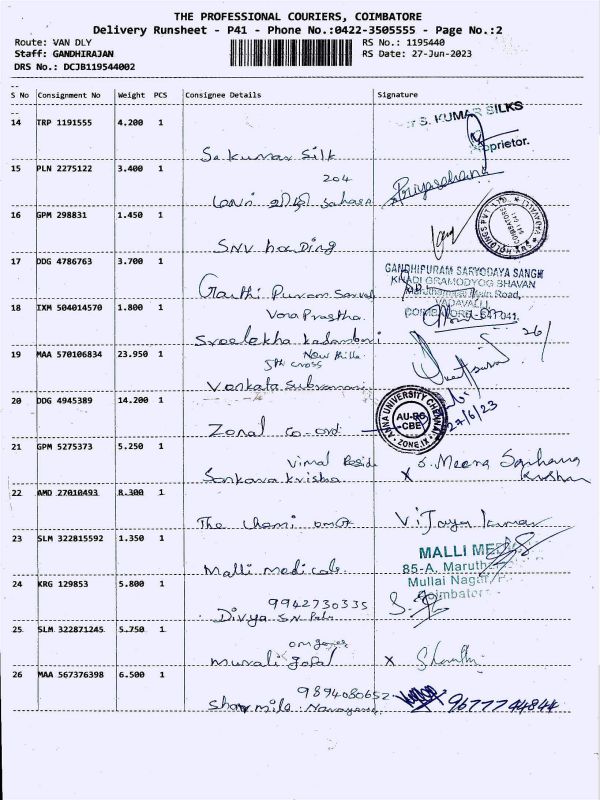 THE PROFESSIONAL COURIERS, COIMBATORE
Delivery Runsheet - P41 - Phone No.:0422-3505555 - Page No.:2
Route: VAN DLY
RS No.: 1195440
Staff: GANDHIRAJAN
RS Date: 27-Jun-2023
DRS No.: DCJB119544002
S No Consignment No Weight PCS Consignee Details Signature
S. KUMAR SILKS
14 TRP 1191555 4.200 1
Proprietor.
Sakumar Silk
204
15 PLN 2275122 3.400 1
Priyadharsana
Sahara
16 GPM 298831 1.450 1
SNV holding
17 DDG 4786763 3.700 1
GANDHIPURAM SARVODAYA SANGH
KHADI GRAMODYOG BHAVAN
Maruthamalai Main Road,
VADAVALLI
COIMBATORE - 641 041.
Gandhi Puram Sarvod
18 IXM 504014570 1.800 1
Vana Prastha
Sreelekha Kadambari
26/
19 MAA 570106834 23.950 1
New thilla
5th cross
Venkata Subramani
20 DDG 4945389 14.200 1
ANNA UNIVERSITY CHENNAI
AU-RO
CBE
ZONE.IX
27/6/23
Zonal Co-ord
21 GPM 5275373 5.250 1
Vimal Reside
Sankara Krishna
x S. Meena Sankara Krishnan
22 AMD 27010493 8.300 1
The Chami
Vijaya Kumar
23 SLM 322815592 1.350 1
MALLI MEDI
85-A, Marutha
Mullai Nagar, P.
Coimbatore
Malli medicals
24 KRG 129853 5.800 1
9942730335
Divya S.N
25 SLM 322871245 5.750 1
murali gopal
x Shanthi
26 MAA 567376398 6.500 1
9894080652
Sharmila Narayana
9677744844